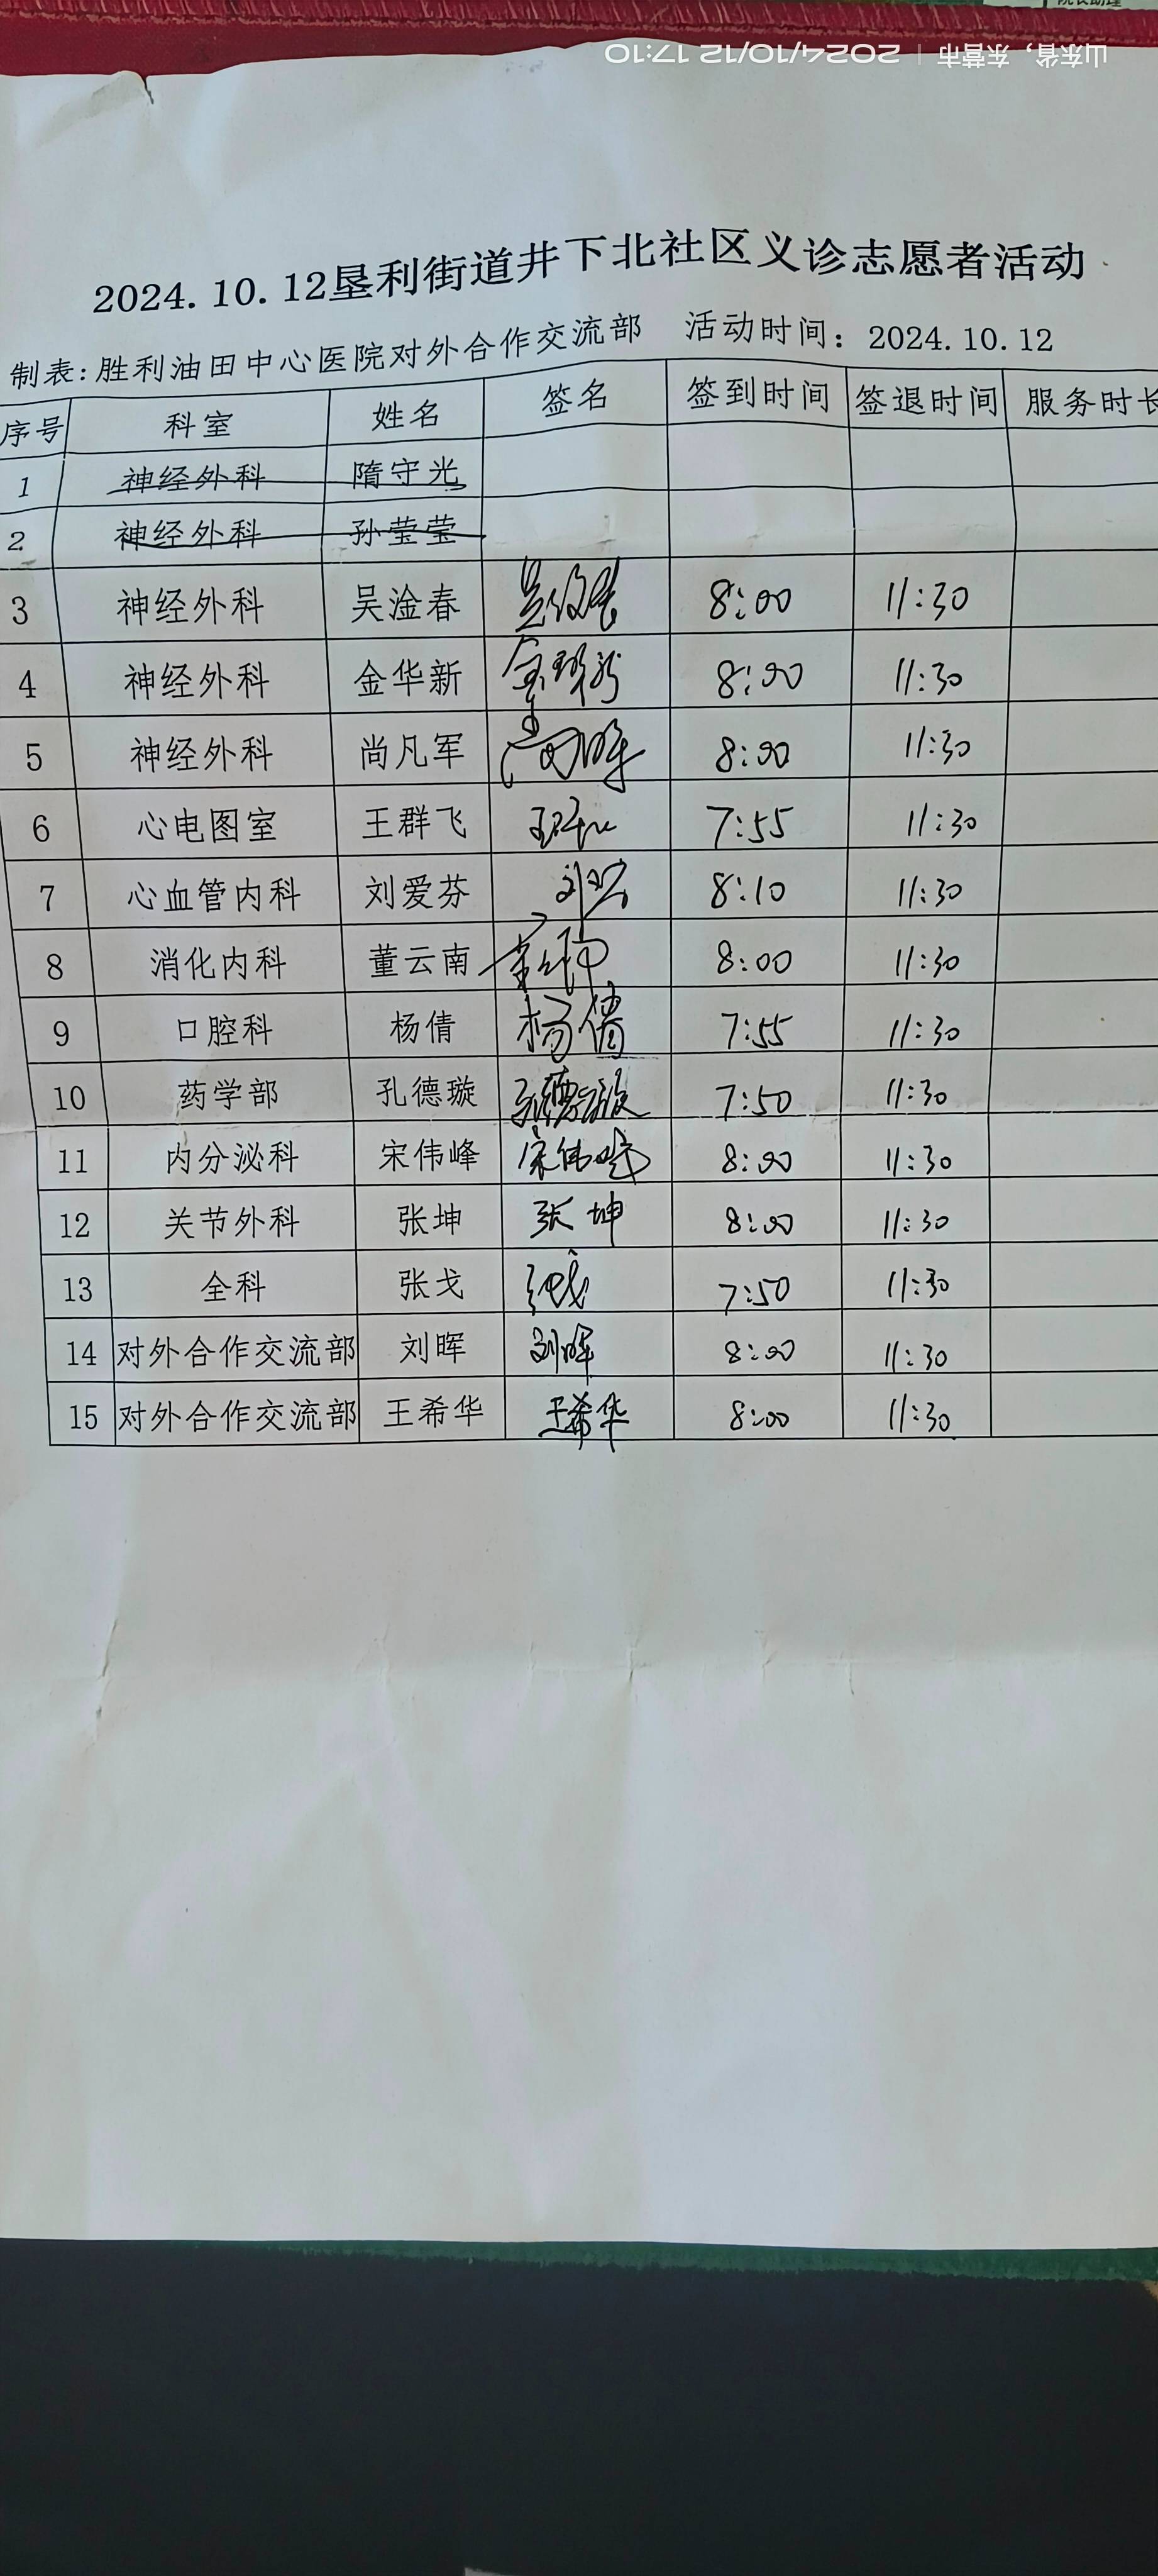 院长助理
山东省, 东营市 | 2024/10/12 17:10
2024.10.12垦利街道井下北社区义诊志愿者活动
制表:胜利油田中心医院对外合作交流部 活动时间: 2024.10.12
序号 科室 姓名 签名 签到时间 签退时间 服务时长
1 神经外科 隋守光
2 神经外科 孙莹莹
3 神经外科 吴淦春 8:00 11:30
4 神经外科 金华新 金华新 8:00 11:30
5 神经外科 尚凡军 8:00 11:30
6 心电图室 王群飞 7:55 11:30
7 心血管内科 刘爱芬 8:10 11:30
8 消化内科 董云南 8:00 11:30
9 口腔科 杨倩 杨倩 7:55 11:30
10 药学部 孔德璇 孔德璇 7:50 11:30
11 内分泌科 宋伟峰 宋伟峰 8:00 11:30
12 关节外科 张坤 张坤 8:00 11:30
13 全科 张戈 张戈 7:50 11:30
14 对外合作交流部 刘晖 刘晖 8:00 11:30
15 对外合作交流部 王希华 王希华 8:00 11:30